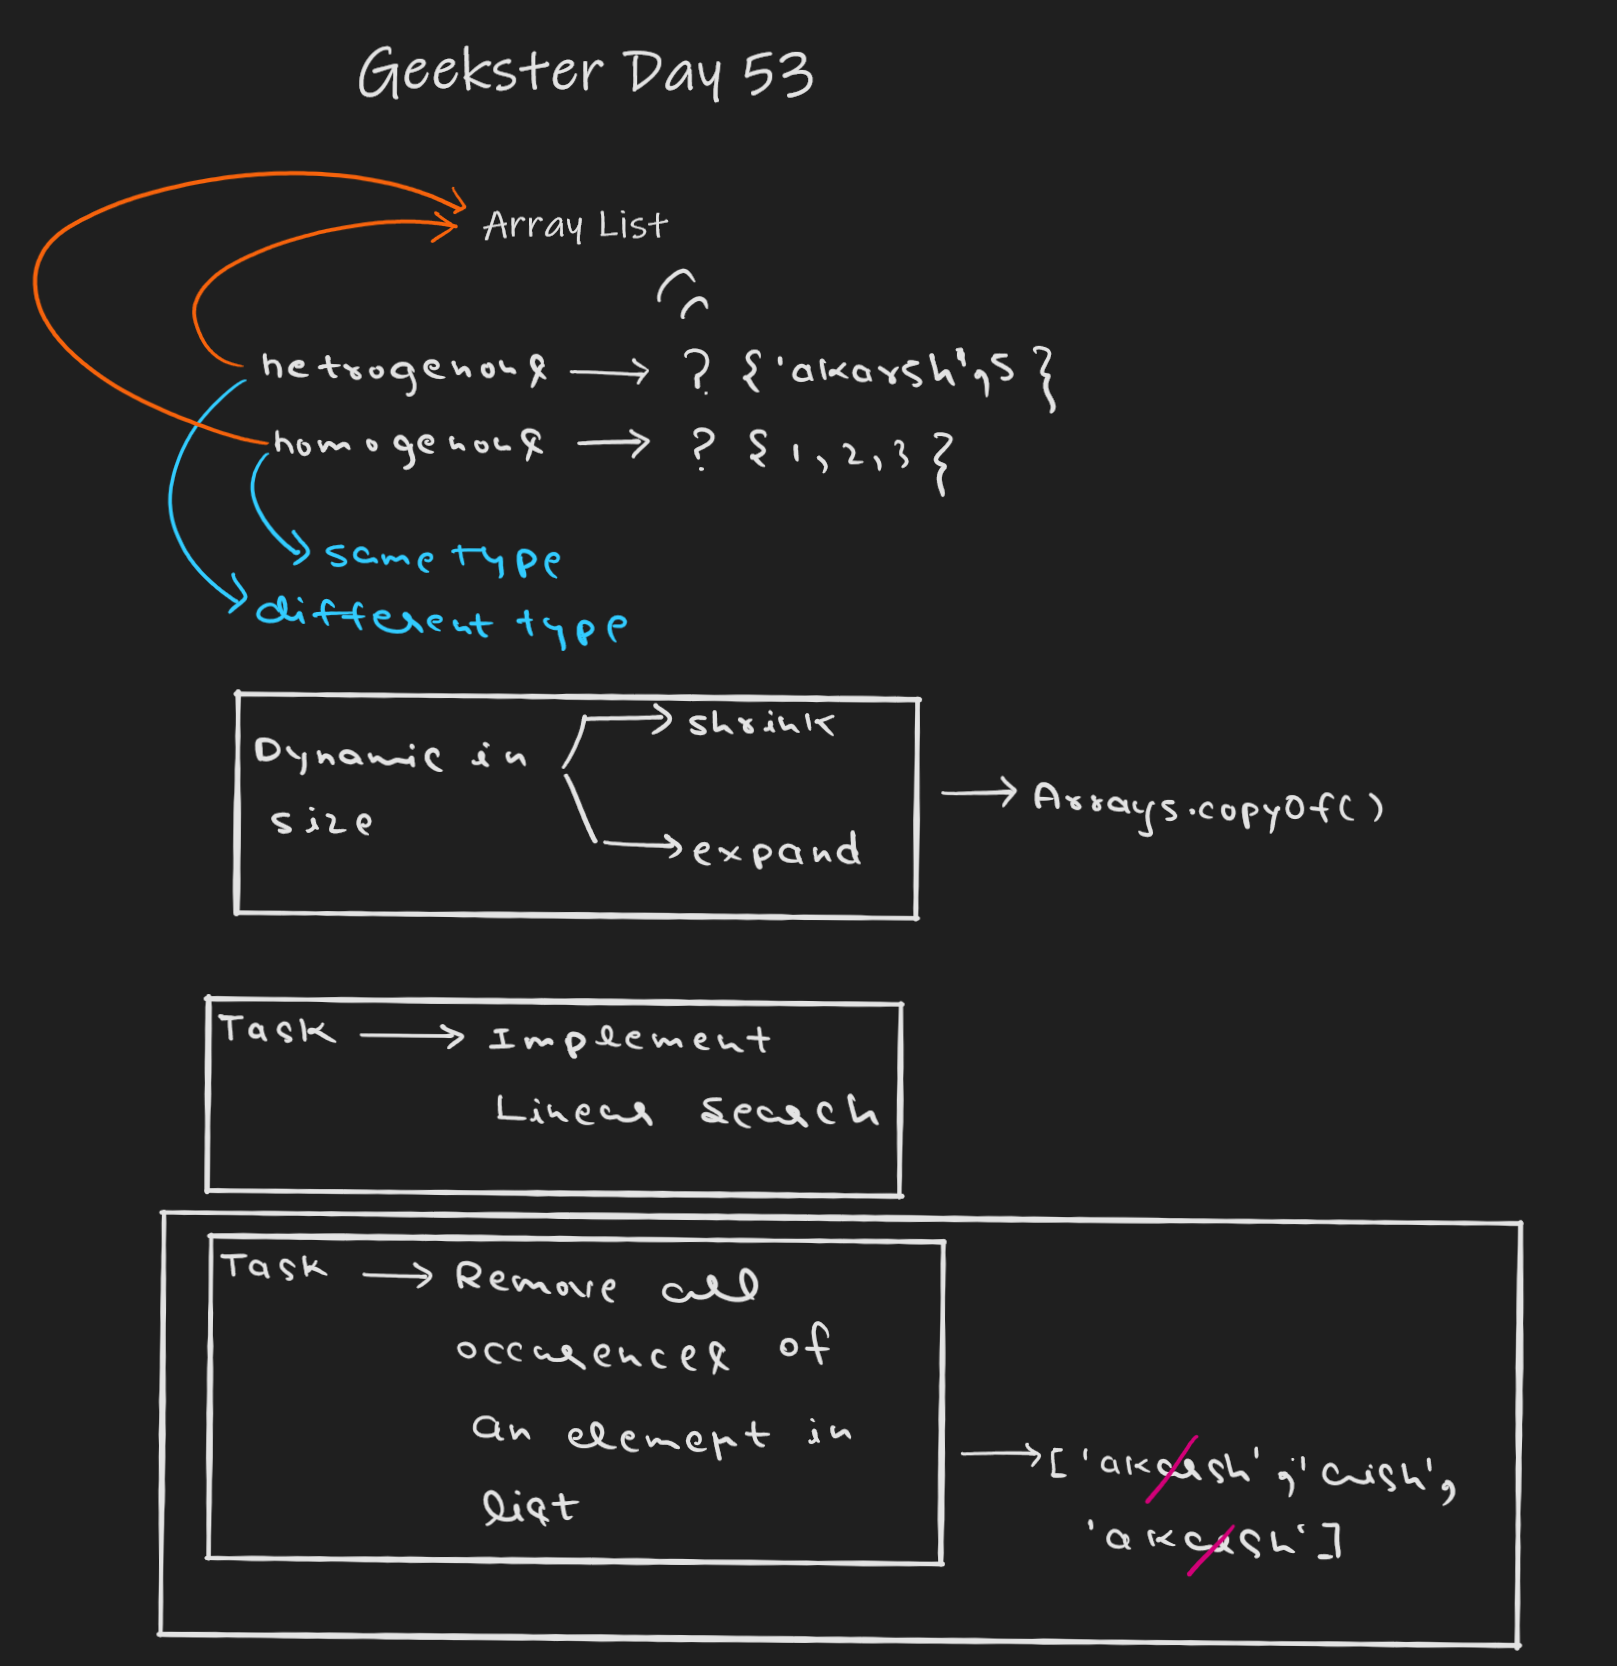 Geekster Day 53
Array List
hetrogenous → ? {'akarsh', 5}
homogenous → ? {1, 2, 3}
same type
different type
Dynamic in
size
→ shrink
→ expand
→ Arrays.copyOf()
Task → Implement
Linear Search
Task → Remove all
occurences of
an element in
list
→ ['akarsh', 'arish',
'akarsh']